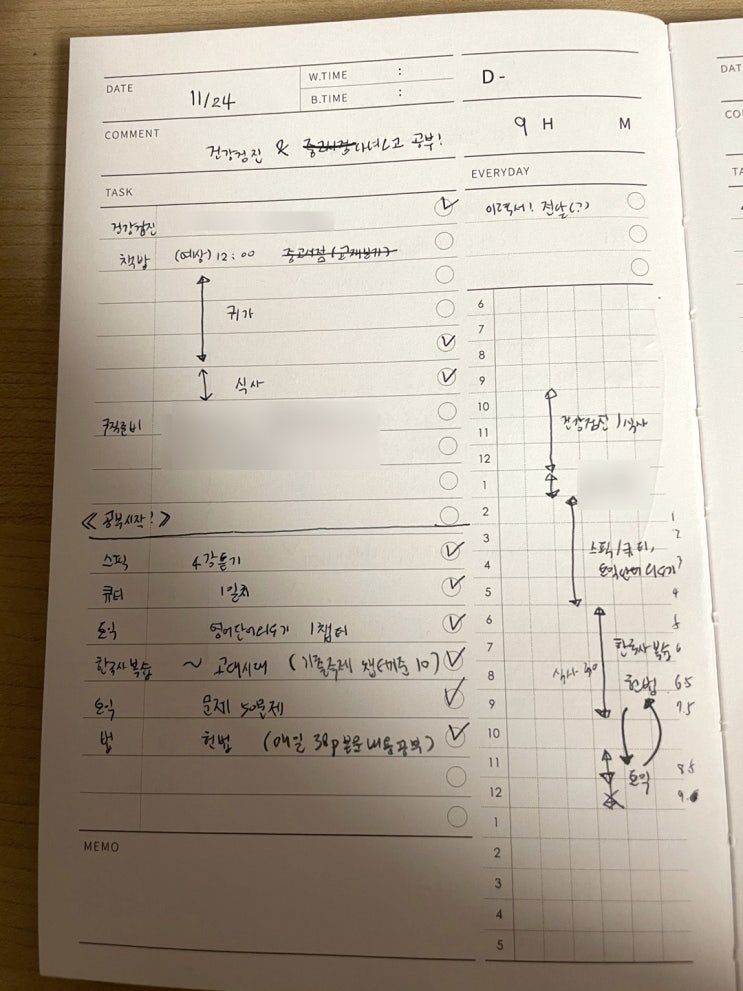 DATE 11/24
W.TIME :
B.TIME :
D-
9 H M
COMMENT
건강검진 & 중고서점 다녀오고 공부!
TASK
건강검진
책방 (예상) 12:00 중고서점 (교재보기)
귀가
식사
구직준비
《공부시작!》
스픽 4강듣기
큐티 1일치
토익 영어단어외우기 1챕터
한국사복습 ~ 고대시대 (기출주제 챕터기준 10)
토익 문제 50문제
법 헌법 (매일 38p분로 내용공부)
MEMO
EVERYDAY
이력서! 전달(?)
6
7
8
9
10 건강검진 / 식사
11
12
1
2 1
3 2
스픽/큐티,
4 토익단어외우기 3
5 4
6 5
7 한국사 복습 6
8 식사 30 헌법 65
9 7.5
10
11 토익 85
12 9.
1
2
3
4
5
DAT